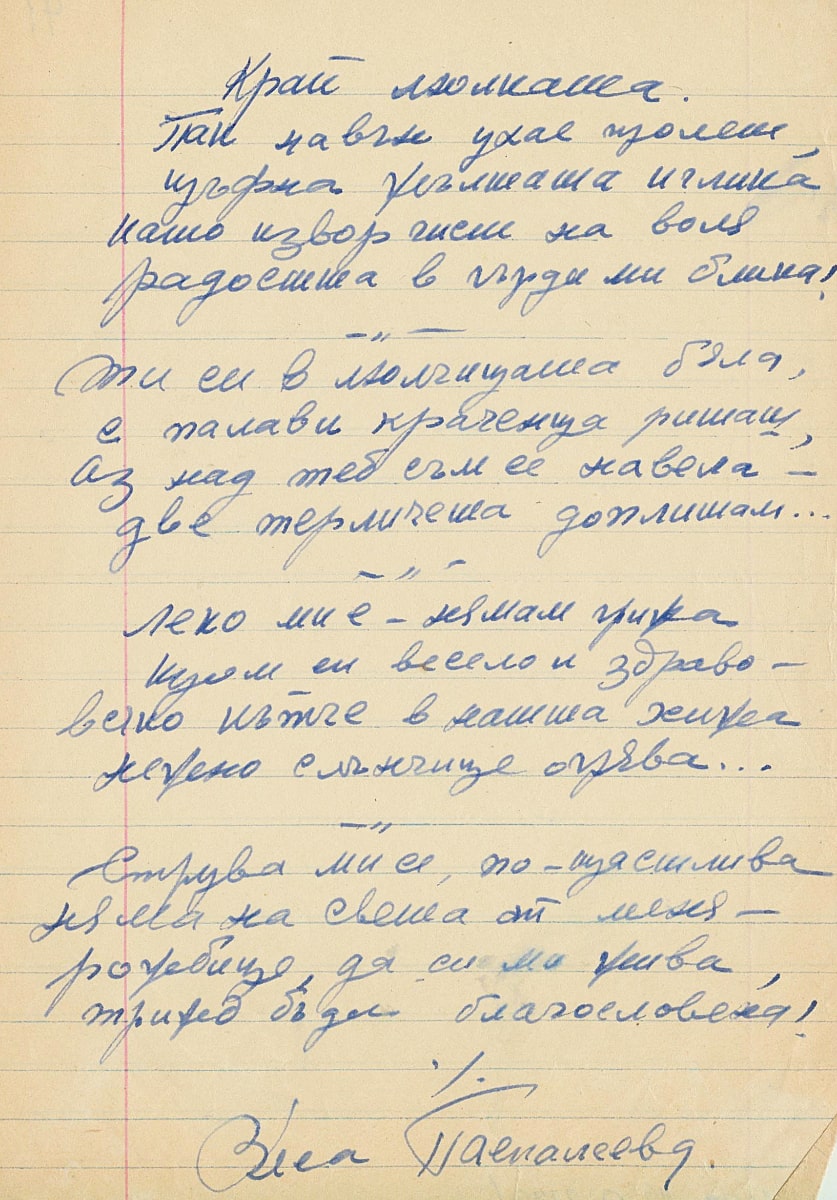 Край люлката.
Пак навън ухае пролет,
цъфна жълтата иглика
като извор чист на воля
радостта в гърди ми блика!
— „ —
Ти си в люлчицата бяла,
с палави краченца риташ,
Аз над теб съм се навела —
две терличета доплитам...
— „ —
Леко ми е — нямам грижа
щом си весело и здраво —
вечно кътче в нашта хижа
нежно слънчице огрява...
— „
Струва ми се, по-щастлива
няма на света от меня —
рожбице, да си ми жива,
триж бъди благословена!
·/.
Веса Паспалеева.